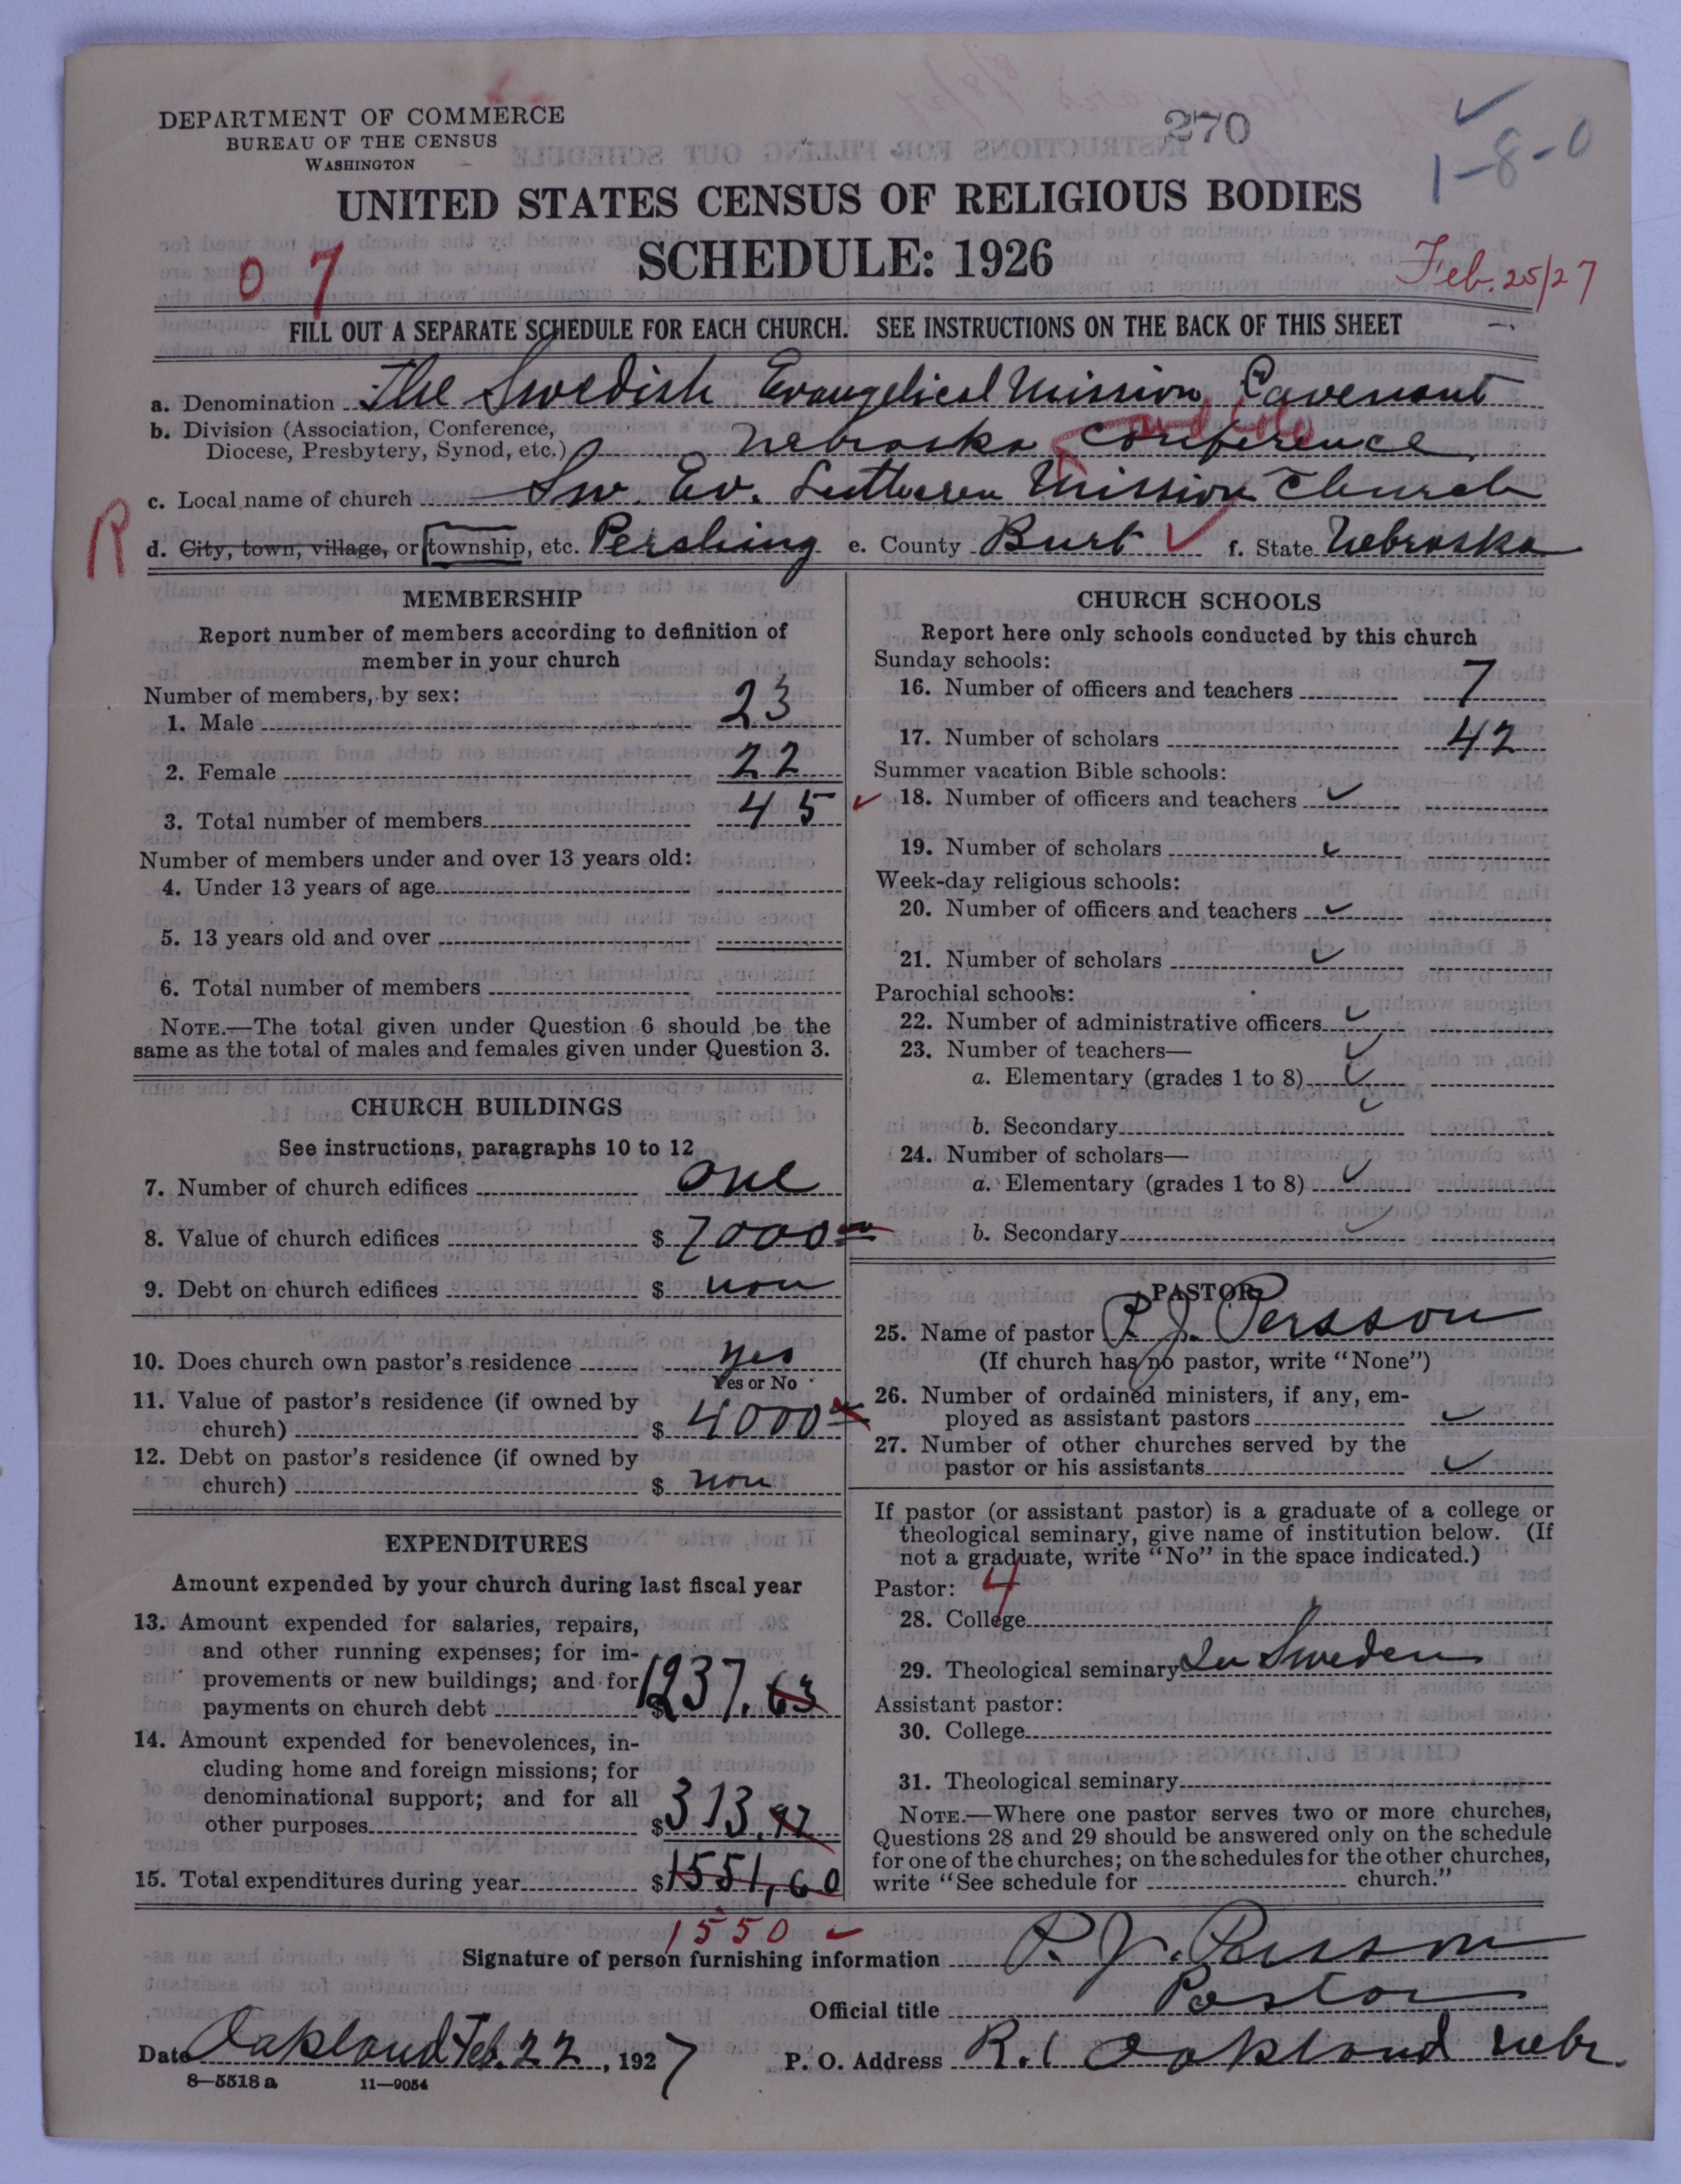 DEPARTMENT OF COMMERCE
BUREAU OF THE CENSUS
WASHINGTON
270
1-8-0
UNITED STATES CENSUS OF RELIGIOUS BODIES
SCHEDULE: 1926
07
Feb. 25/27
FILL OUT A SEPARATE SCHEDULE FOR EACH CHURCH. SEE INSTRUCTIONS ON THE BACK OF THIS SHEET
a. Denomination The Swedish Evangelical Mission Cavenant
b. Division (Association, Conference,
Diocese, Presbytery, Synod, etc.) Nebraska Conference
c. Local name of church Sw. Ev. Lutheren Mission Church
R
d. City, town, village, or township, etc. Pershing e. County Burt f. State Nebraska
MEMBERSHIP
Report number of members according to definition of
member in your church
Number of members, by sex:
1. Male 23
2. Female 22
3. Total number of members 45
Number of members under and over 13 years old:
4. Under 13 years of age
5. 13 years old and over
6. Total number of members
NOTE.—The total given under Question 6 should be the
same as the total of males and females given under Question 3.
CHURCH BUILDINGS
See instructions, paragraphs 10 to 12
7. Number of church edifices one
8. Value of church edifices $ 7000
9. Debt on church edifices $ non
10. Does church own pastor's residence yes
Yes or No
11. Value of pastor's residence (if owned by
church) $ 4000
12. Debt on pastor's residence (if owned by
church) $ non
EXPENDITURES
Amount expended by your church during last fiscal year
13. Amount expended for salaries, repairs,
and other running expenses; for im-
provements or new buildings; and for
payments on church debt $ 1237.63
14. Amount expended for benevolences, in-
cluding home and foreign missions; for
denominational support; and for all
other purposes $ 313.97
15. Total expenditures during year $ 1551,60
1550
CHURCH SCHOOLS
Report here only schools conducted by this church
Sunday schools:
16. Number of officers and teachers 7
17. Number of scholars 42
Summer vacation Bible schools:
18. Number of officers and teachers
19. Number of scholars
Week-day religious schools:
20. Number of officers and teachers
21. Number of scholars
Parochial schools:
22. Number of administrative officers
23. Number of teachers—
a. Elementary (grades 1 to 8)
b. Secondary
24. Number of scholars—
a. Elementary (grades 1 to 8)
b. Secondary
PASTOR
25. Name of pastor P. J. Persson
(If church has no pastor, write "None")
26. Number of ordained ministers, if any, em-
ployed as assistant pastors
27. Number of other churches served by the
pastor or his assistants
If pastor (or assistant pastor) is a graduate of a college or
theological seminary, give name of institution below. (If
not a graduate, write "No" in the space indicated.)
Pastor: 4
28. College
29. Theological seminary In Sweden
Assistant pastor:
30. College
31. Theological seminary
NOTE.—Where one pastor serves two or more churches,
Questions 28 and 29 should be answered only on the schedule
for one of the churches; on the schedules for the other churches,
write "See schedule for church."
Signature of person furnishing information P. J. Persson
Official title Pastor
Date Oakland Feb. 22, 1927 P. O. Address R. 1 Oakland Nebr.
8—5518 a 11—9054